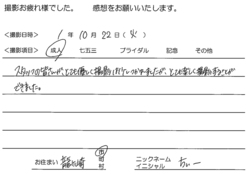 撮影お疲れ様でした。 感想をお願いいたします。
<撮影日時> 1年 10月 22日(火)
<撮影項目> 成人 七五三 ブライダル 記念 その他
スタッフの皆さんが、とても優しく撮影
とても楽しく撮影することが
できました。
お住まい 龍ケ崎 市 町 村 ニックネーム イニシャル ちぃー